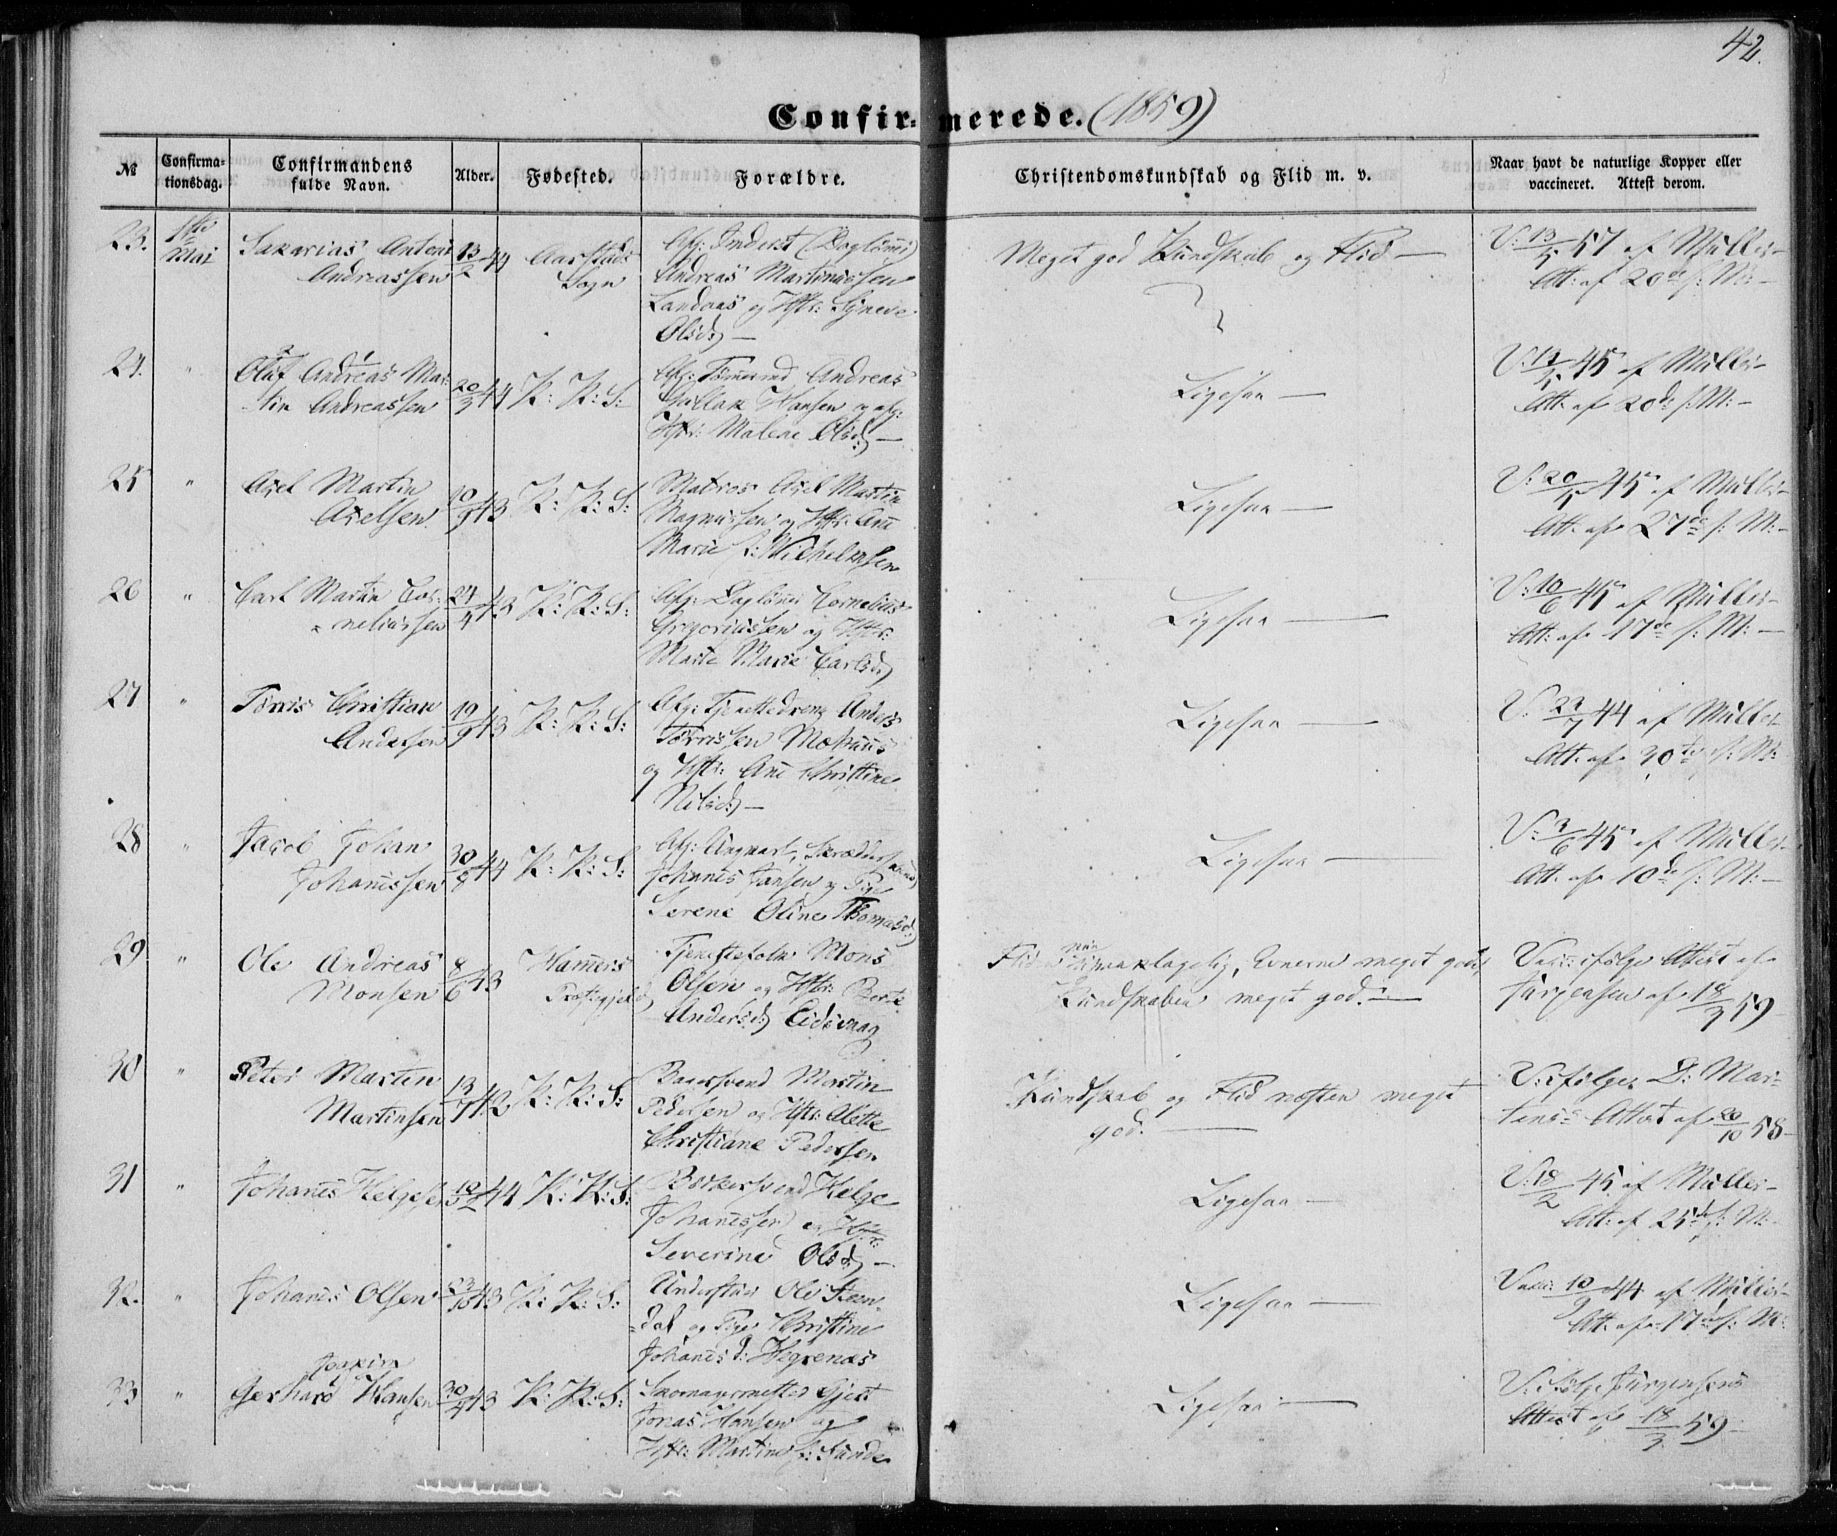 42.
Confirmerede. (1859)
№ Confirmationsdag. Confirmandens fulde Navn. Alder. Fødested. Forældre. Christendomskundskab og Flid m. v. Naar havt de naturlige Kopper eller vaccineret. Attest derom.
23. 1ste Mai
Sakarias Anton
Andreassen
13/2 44
Aarstads
Sogn
Afg: Inderst (Dagløner)
Andreas Martinussen
Landaas og Hstr: Synneve
Olsd: —
Meget god Kundskab og Flid —
V: 13/5 57 af Müller
Att: af 20de s: M: —
24. "
Oluf Andreas Mar-
tin Andreassen
20/3 44
K: K: S:
Afg: Tømmermd Andreas
Hansen og afg:
Hstr: Malene Olsd: —
Ligesaa —
V: 13/5 45 af Müller
Att: af 20de s: M: —
25 "
Axel Martin
Axelsen
10/9 43
K: K: S:
Matros Axel Martin
Magnussen og Hstr: Ane
Marie f: Wichelmsen
Ligesaa —
V: 20/5 45 af Müller
Att: af 27de s: M: —
26 "
Carl Martin Cor-
neliussen
24/4 42
K: K: S:
Afg: Dagløner Cornelius
Gregoriussen og Hstr:
Marte Marie Carlsd:
Ligesaa —
V: 10/6 45 af Müller
Att: af 17de s: M: —
27 "
Tørris Christian
Andersen
19/9 43
K: K: S:
Afg: Tjenestedreng Anders
Tørrissen
og Hstr: Ane Christine
Nilsd: —
Ligesaa —
V: 22/7 44 af Müller
Att: af 30te s: M:
28 "
Jacob Johan
Johannssen
30/8 44
K: K: S:
Afg: Ungkarl, Skræddersvend
Johannes Jansen og Pige
Serene Oline Thomasd:
Ligesaa —
V: 3/6 45 af Müller
Att: af 10de s: M: —
29 "
Ole Andreas
Monsen
8/6 43
Hammers
Præstegjeld
Tjenestefolk Mons
Olsen og Hstr: Berte
Andersd: Eidsvaag
Flid upaaklagelig, Evnerne meget gode
Kundskaben meget god. —
Vac: ifølge Attest af
Jürgensen af 18/3 59
30 "
Peter Martin
Martinsen
13/7 42
K: K: S:
Bagersvend Martin
Pedersen og Hstr: Alette
Christiane Pedersen
Kundskab og Flid næsten meget
god. —
V: ifølge D: Mar-
tens's Attest af 20/10 58
31 "
Johannes Helgesen
K: K: S:
Bødkersvend Helge
Johannessen og Hstr:
Severine Olsd: —
Ligesaa —
V: 18/2 45 af Müller
Att: af 25de s: M:
32. "
Johannes Olsen
23/10 43
K: K: S:
Understuer Ole Steen-
dal og Pige Christine
Johannesd: Hegrenæs
Ligesaa —
Vacc: 10/9 44 af Müller
Att. af 17de s: M:
33 "
Joakim
Gerhard Hansen
K: K: S:
Skomagermester Gjert
Jonas Hansen og
Hstr: Martine f: Sunde
Ligesaa —
V: ifølge Jürgensens
Attest af 18/3 59